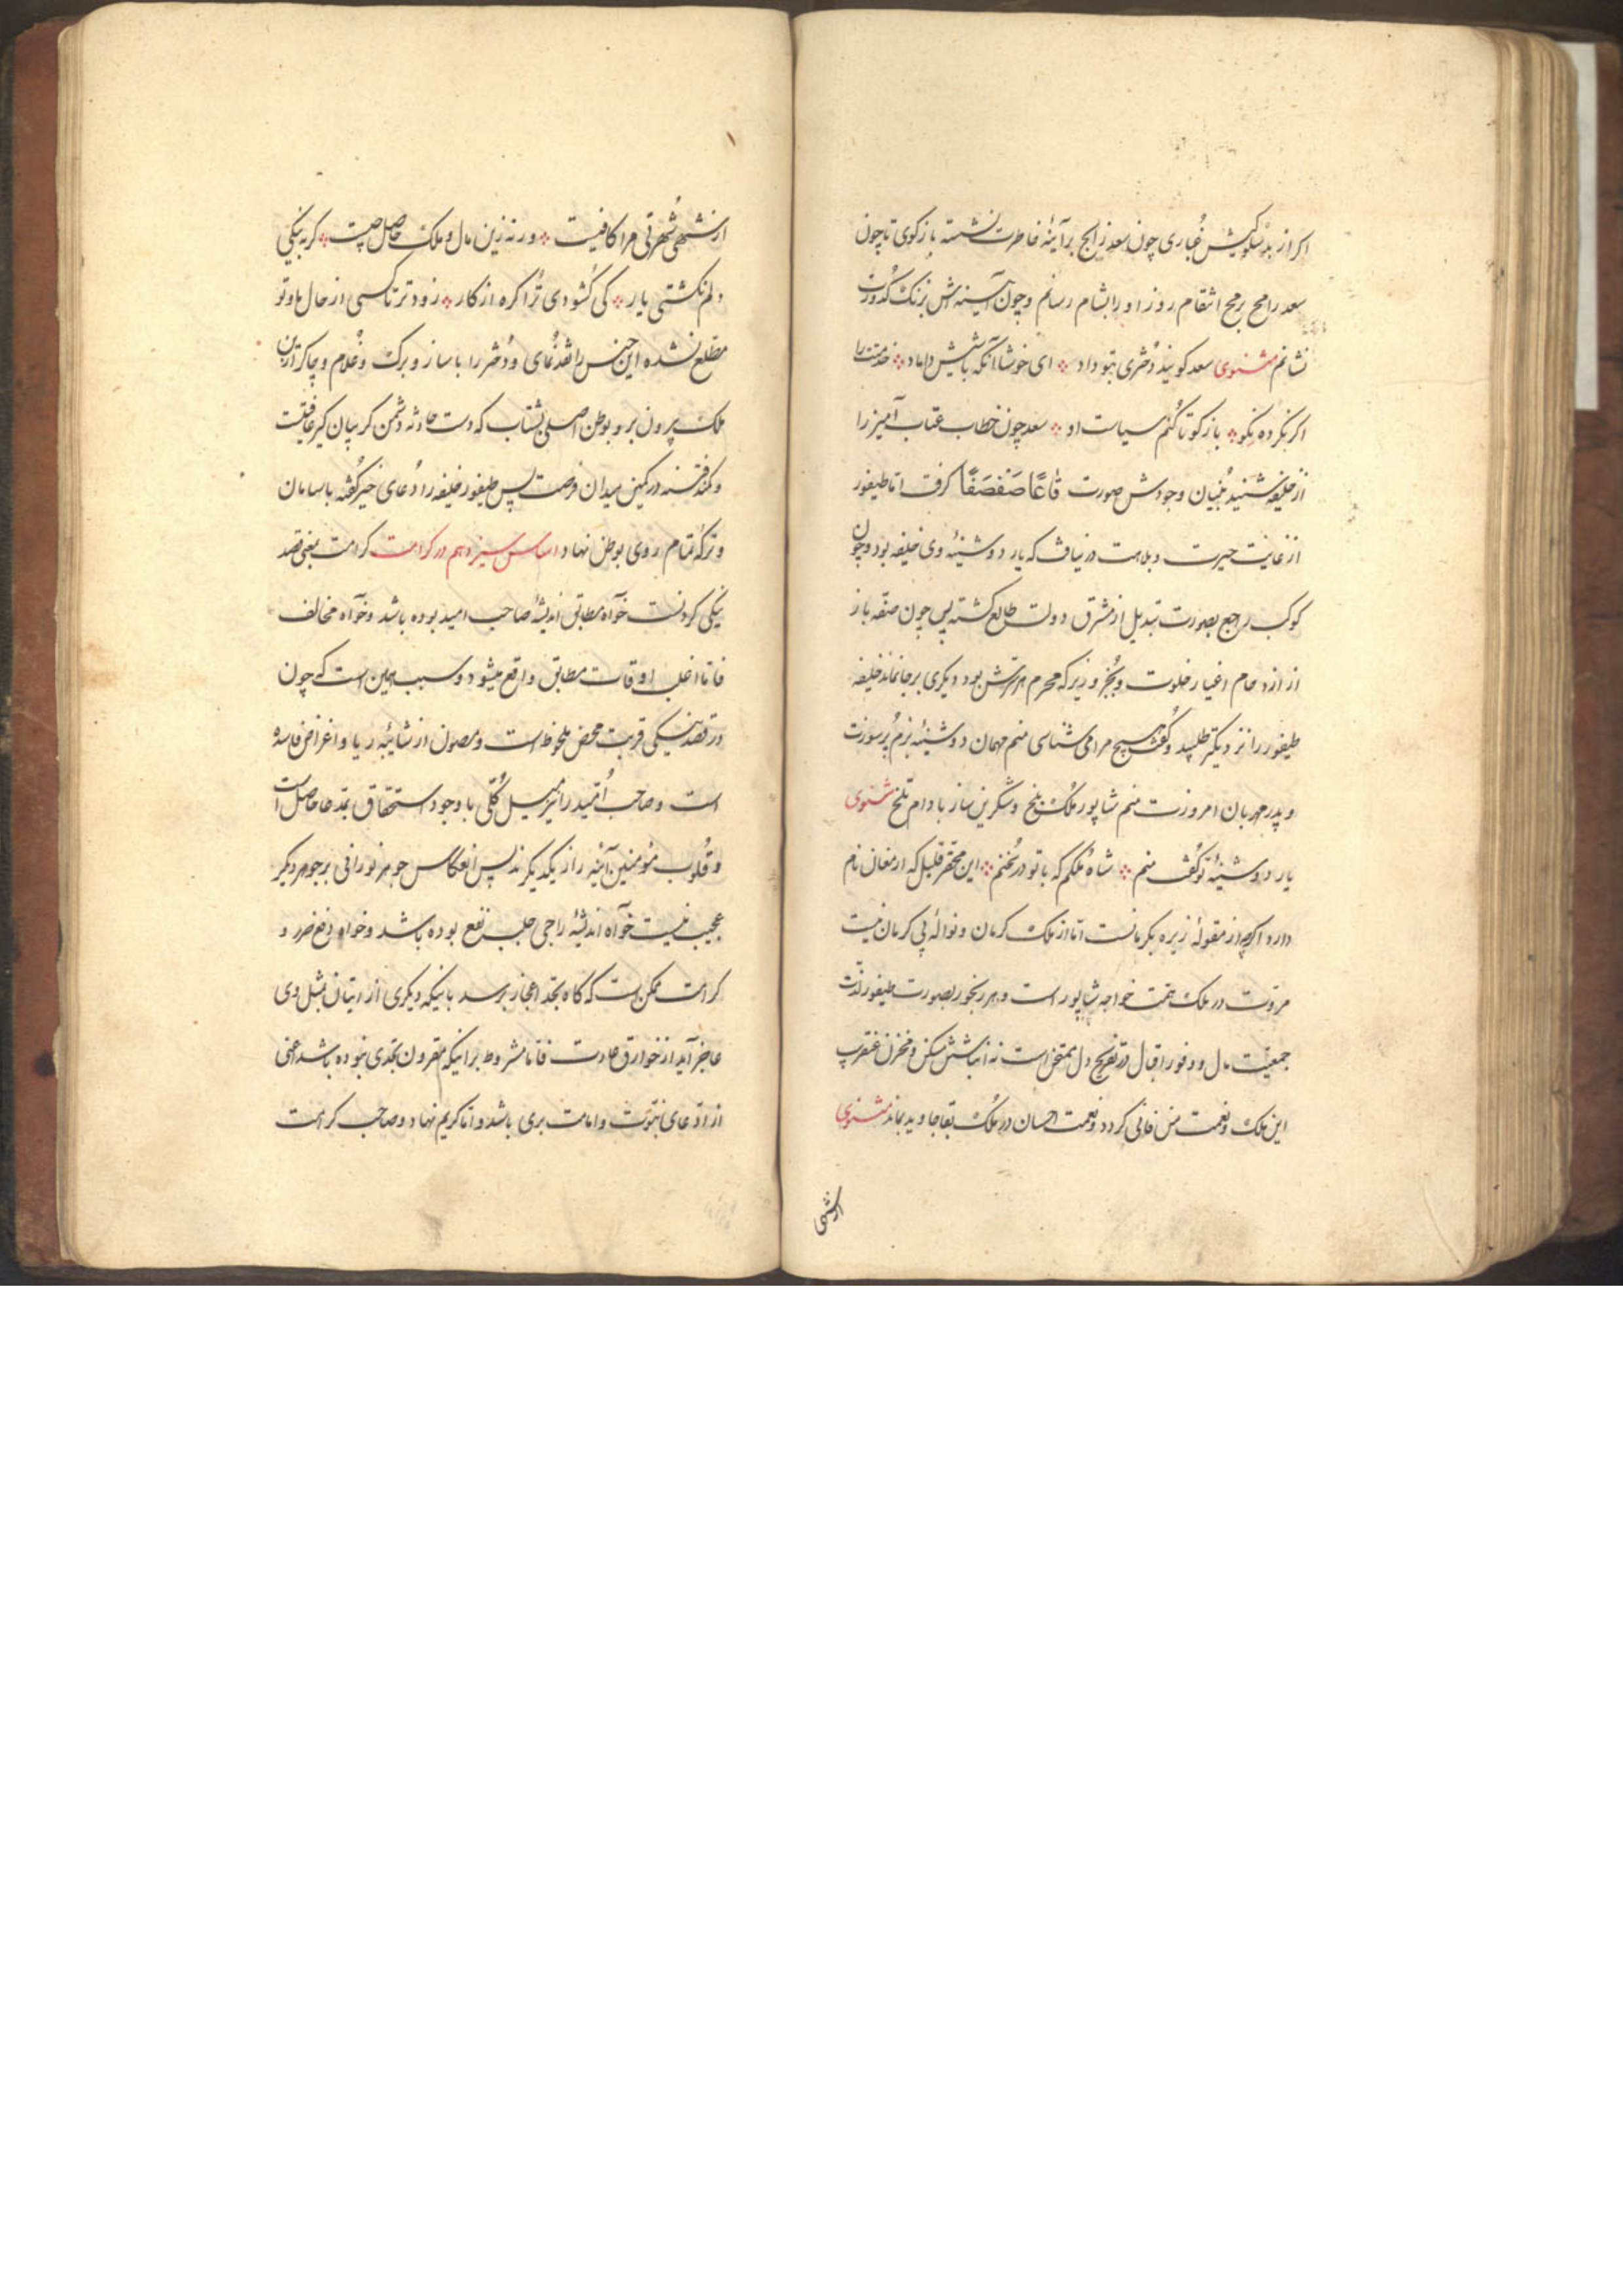 اکر از بدسلوکیش غباری چون سعد زابح بر آینهٔ خاطرت نشسته باز کوی تا چون
سعد رامح برمح انتقام روز او را بشام رسانم و چون آیینه‌اش بزنک کدورت
نشانم مثنوی سعد کویند دختری بتو داد ؞ ای خوشا آنکه باشیش داماد ؞ خدمتت را
اکر نکرده نکو ؞ باز کو تا کنم سیاست او ؞ سعد چون خطاب عتاب آمیز را
از خلیفه شنید بنیان وجودش صورت قَاعًا صَفْصَفًا کرفت اما طیفور
از غایت حیرت و بلاهت در نیافت که یار دوشینهٔ وی خلیفه بود و چون
کوکب راجع بصورت تبدیل از مشرق دولت طالع کشته پس چون صفه بار
از ازدحام اغیار خلوت و بجز وزیر که محرم بود دیکری بر جا نماند خلیفه
طیفور را نزدیکتر طلبید و کفت هیچ مرا می شناسی منم مهمان دوشینهٔ بزم پر سورت
و پدر مهربان امروزت منم شاپور ملک بلخ و شکرین ساز بادام تلخ مثنوی
یار دوشینهٔ تو کفت منم ؞ شاه ملکم که با تو در سخنم ؞ این محقر قلیل که ارمغان نام
دارد اکرچه از مقولهٔ زیره بکرمانست اما از ملک کرمان و نوالهٔ بی کرمان نیست
مروت در ملک همت خواجه شاپور است و هر رنجور بصورت طیفور لذت
جمعیت مال و وفور اقبال در تفریح دل ممتحن است نه انباشتن مسکن و مخزن عنقریب
این ملک و نعمت من فانی کردد و نعمت احسان در ملک بقا جاوید بماند مثنوی
از شهی
از شهی شهرتی مرا کافیست ؞ ورنه زین مال و ملک حاصل چیست ؞ کر به نیکی
دلم نکشتی یار ؞ کی کشودی ترا کره از کار ؞ زودتر تا کسی از حال ما و تو
مطلع نشده این جنس را نقد نمای و دختر را با ساز و برک و غلام و چاکر ازین
ملک بیرون بر و بوطن اصلی بشتاب که دست حادثه دشمن کریبان کیر عافیتست
و کمند فتنه در کمین میدان فرصت پس طیفور خلیفه را دعای خیر کفته با سامان
و ترکه تمام روی بوطن نهاد اساس سیزدهم در کرامت کرامت بمعنی قصد
نیکی کردنست خواه مطابق اندیشهٔ صاحب امید بوده باشد و خواه مخالف
فاما اغلب اوقات مطابق واقع میشود و سبب همین است که چون
در قصد نیکی قربت محض ملحوظ است و مصون از شائبهٔ ریا و اغراض فاسده
است و صاحب امید را نیز میل کلی با وجود استحقاق بمدعا حاصل است
و قلوب مؤمنین آینه را از یکدیکرند پس انعکاس جوهر نورانی بر جوهر دیکر
عجیب نیست خواه اندیشهٔ راجی جلب نفع بوده باشد و خواه دفع ضرر و
کرامت ممکن است که کاه بحد اعجاز برسد باینکه دیکری از اتیان بمثل وی
عاجز آید از خوارق عادت فاما مشروط بر اینکه مقرون بتحدی نبوده باشد یعنی
از ادعای نبوت و امامت بری باشد و اما کریم نهاد و صاحب کرامت